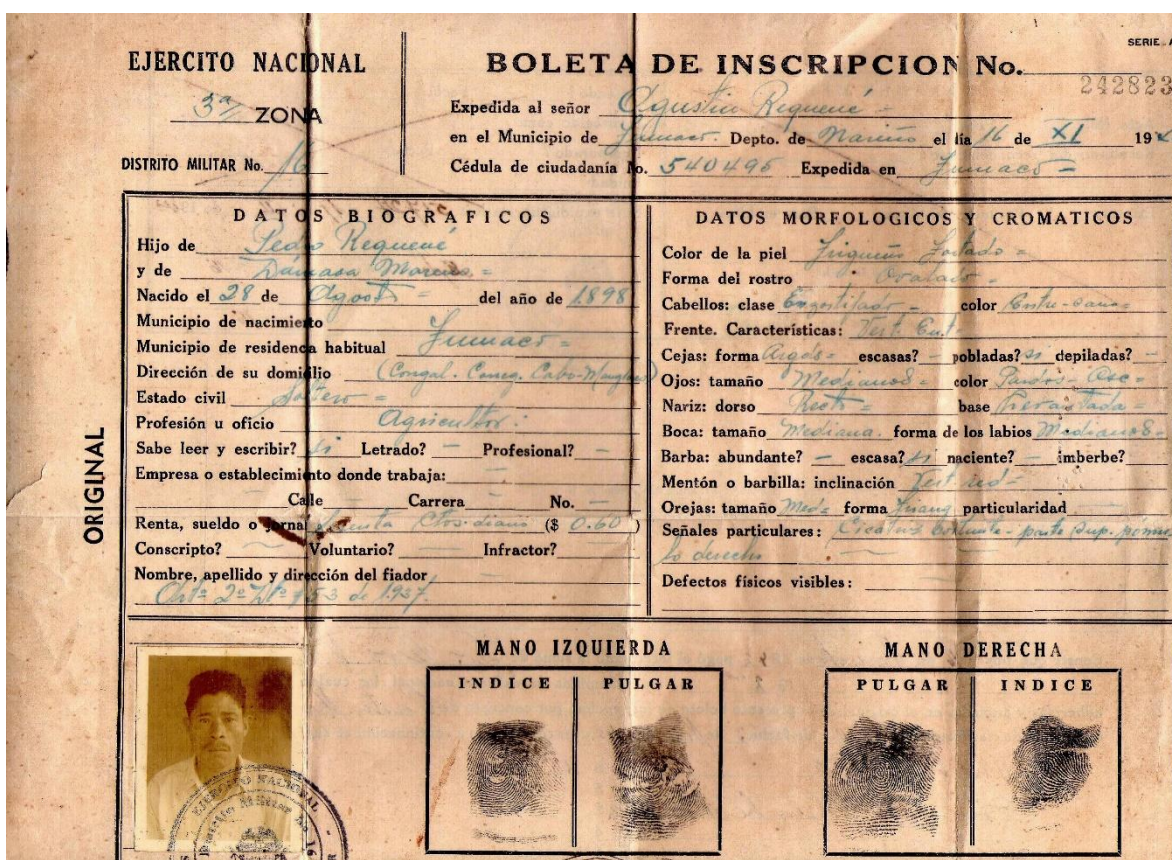 SERIE A
EJERCITO NACIONAL
BOLETA DE INSCRIPCION No.
242823
3a/ ZONA
Expedida al señor Agustin Requené =
en el Municipio de Tumaco. Depto. de Nariño el día 16 de XI 19
DISTRITO MILITAR No. 16
Cédula de ciudadanía No. 540495 Expedida en Tumaco =
ORIGINAL
DATOS BIOGRAFICOS
Hijo de Pedro Requené
y de Dámasa Moreno =
Nacido el 28 de Agosto = del año de 1898
Municipio de nacimiento
Municipio de residencia habitual Tumaco =
Dirección de su domicilio (Congal. Correg. Cabo-Manglares)
Estado civil Soltero =
Profesión u oficio Agricultor.
Sabe leer y escribir? si Letrado? — Profesional? —
Empresa o establecimiento donde trabaja: —
— Calle — Carrera — No. —
Renta, sueldo o jornal Ctvs. diario ($ 0.60)
Conscripto? — Voluntario? — Infractor? —
Nombre, apellido y dirección del fiador —
2º 153 de 1937.
DATOS MORFOLOGICOS Y CROMATICOS
Color de la piel Trigueño =
Forma del rostro Ovalado =
Cabellos: clase color Entre-cano=
Frente. Características:
Cejas: forma escasas? — pobladas? si depiladas? —
Ojos: tamaño Medianos = color Pardos Osc=
Nariz: dorso Rect = base =
Boca: tamaño Mediana. forma de los labios Medianos=
Barba: abundante? — escasa? si naciente? — imberbe?
Mentón o barbilla: inclinación
Orejas: tamaño Med= forma Triang particularidad —
Señales particulares: Cicatriz - parte sup. pómu-
lo derecho —
Defectos físicos visibles: —
MANO IZQUIERDA
INDICE PULGAR
MANO DERECHA
PULGAR INDICE
EJERCITO NACIONAL
Distrito Militar No. 16